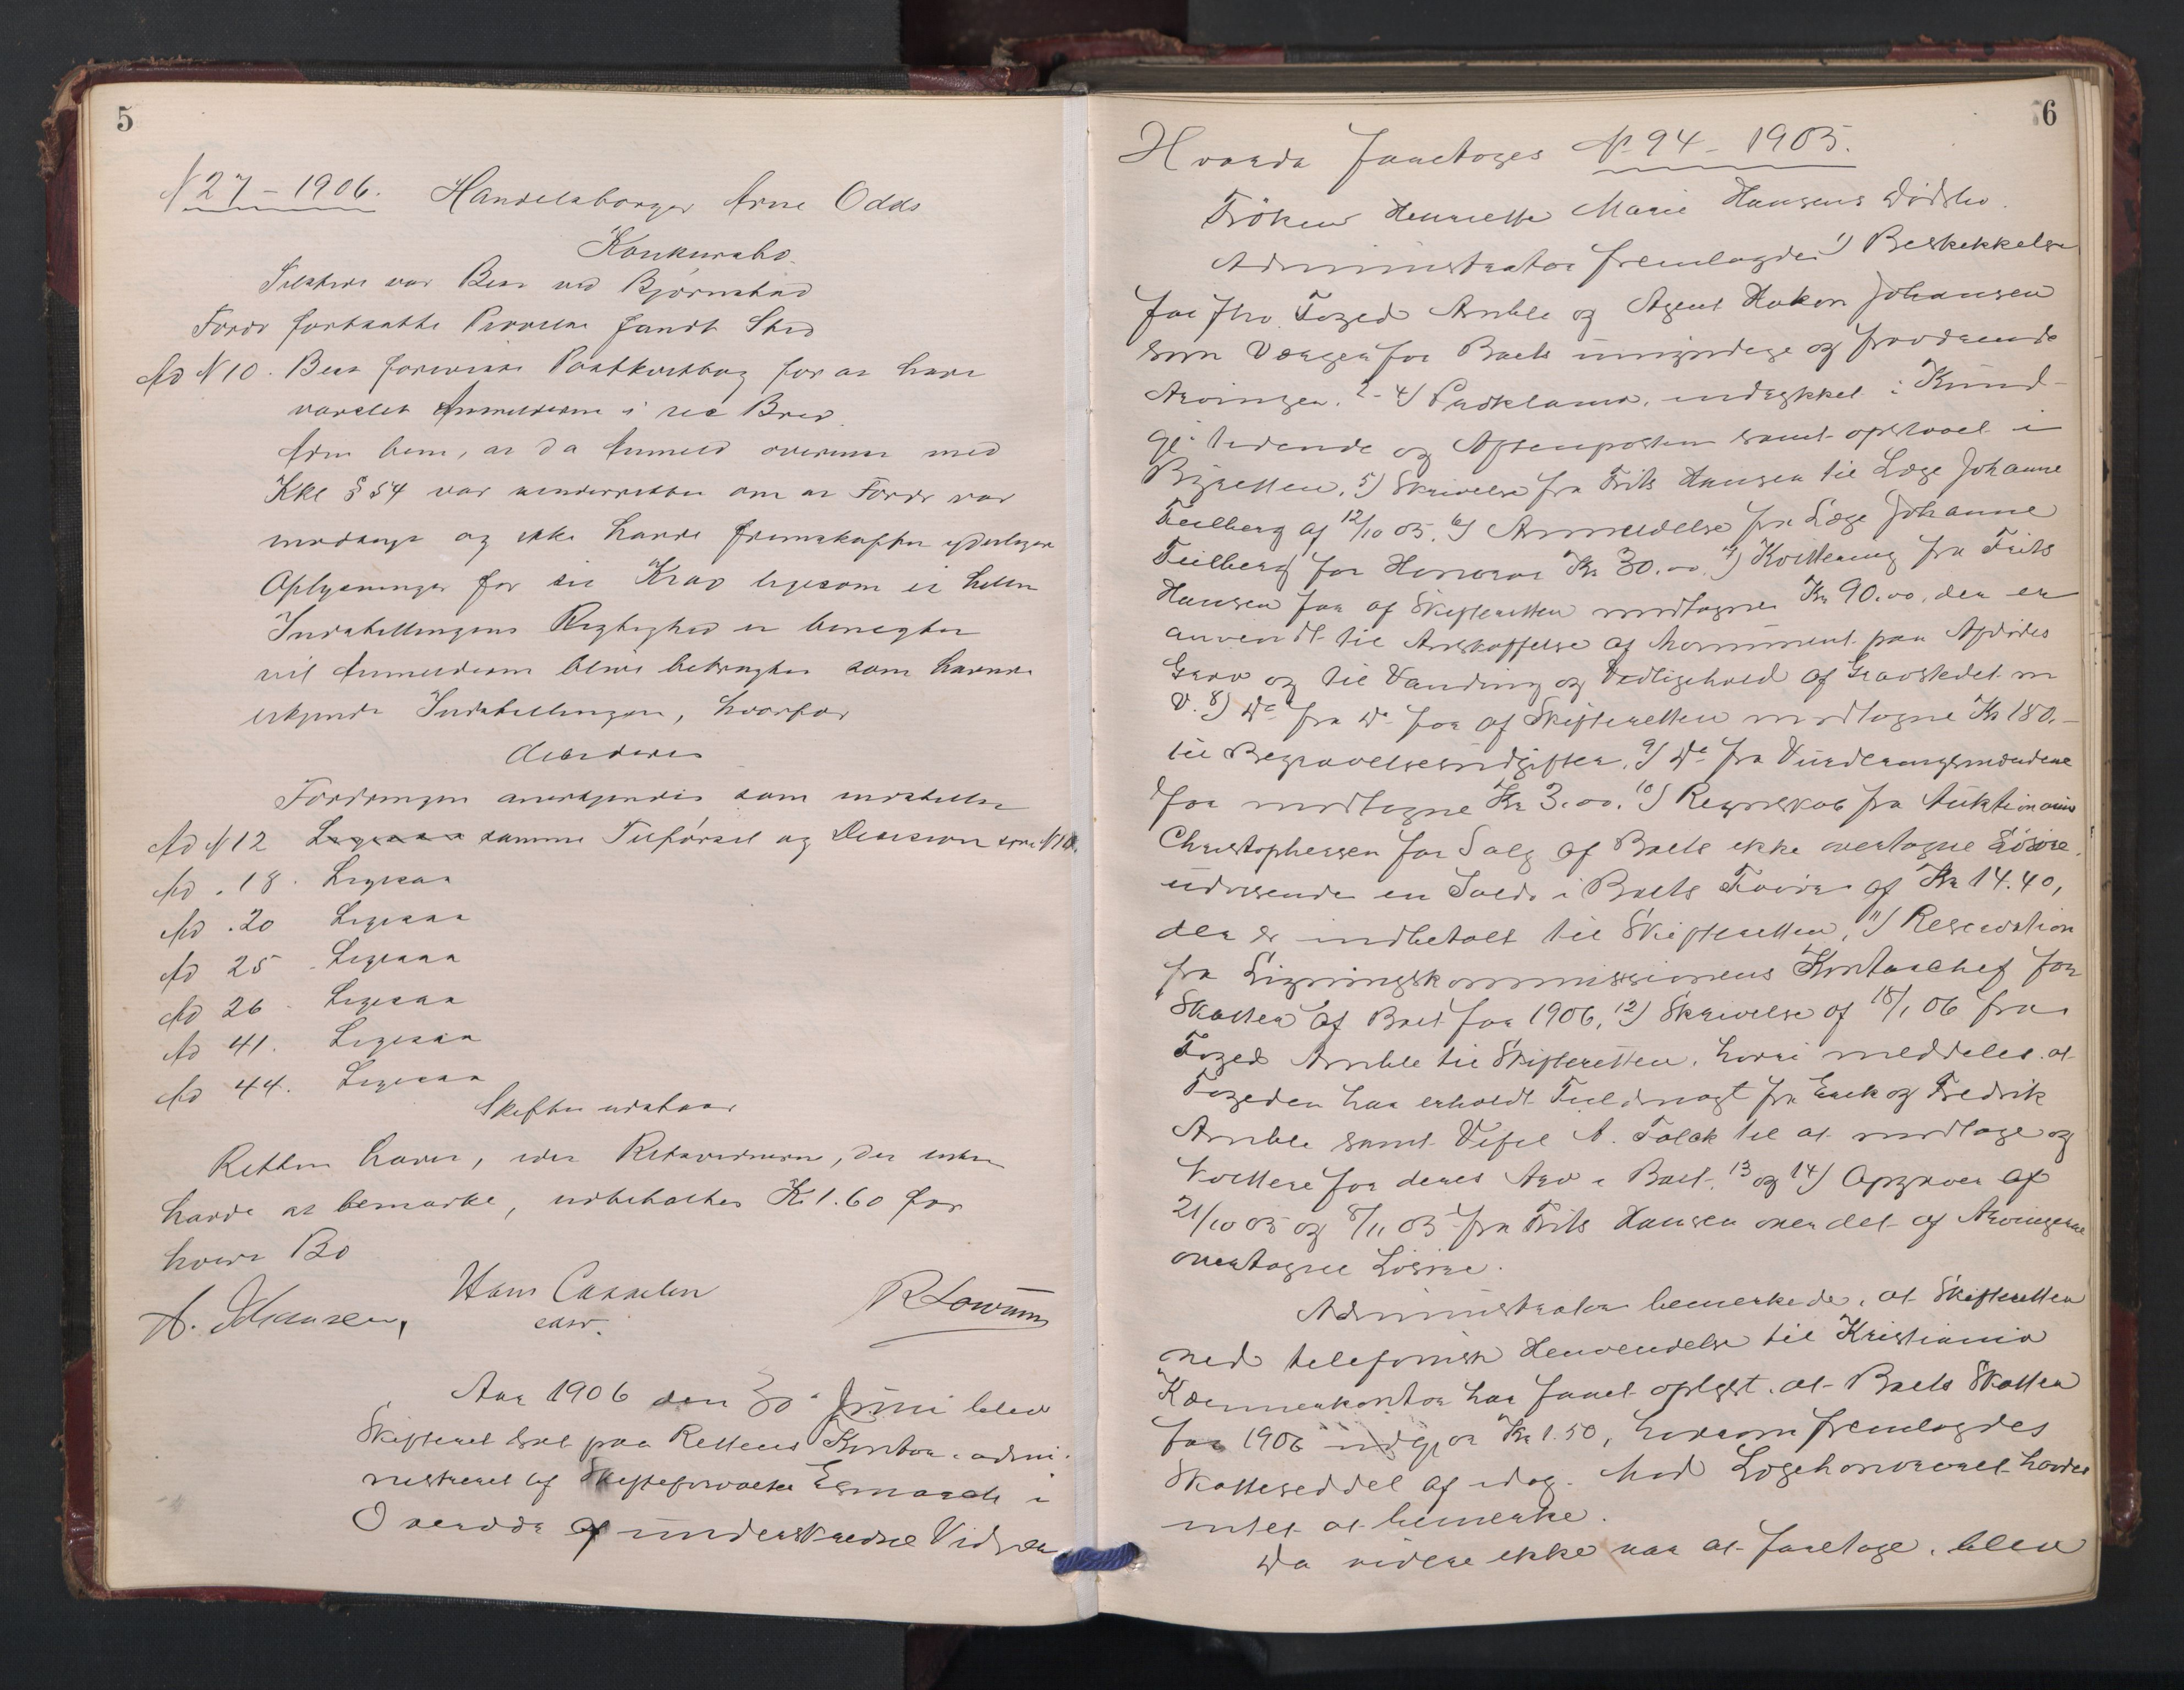 5
N 27 - 1906. Handelsborger Arne Odds
Konkursbo.
Tilstede var Best ved Bjørnstad
Fords fortsatte Prøvelse fandt Sted
Ad N 10. Best foreviste Postkvitbog for at have
varslet Anmelderne i rec Brev.
Adm bem, at da Anmeld overens med
Kkl § 54 var underrettet om at Fordr var
modsagt og ikke havde fremskaffet yderligere
Oplysninger for sit Krav ligesom ei heller
Indstillingens Rigtighed er benegtet
vil Anmelderne blive betragtet som havende
erkjendt Indstillingen, hvorfor
decideres
Fordringen anerkjendes som indstillet
Ad N 12 Ligesaa samme Tilførsel og Decision som N 10.
Ad . 18. Ligesaa
Ad . 20 Ligesaa
Ad 25 Ligesaa
Ad 26 Ligesaa
Ad 41. Ligesaa
Ad 44. Ligesaa
Skiftet udstaar
Retten hævet, efter Retsvidnerne, der intet
havde at bemærke, udbetaltes Kr 1.60 for
hvert Bo
A. Johansen, Hans R
Aar 1906 den 30' Juni blev
Skifteret sat paa Rettens Kontor, admi-
nistreret af Skifteforvalter Esmarch i
Overvær af underskrevne Vidner
6
Hvorda foretoges N 94 - 1905.
Frøken Henriette Marie Hansens Dødsbo.
Administrator fremlagde: 1) Beskikkelse
for fhv. Foged Arnble og Agent Hakon Johansen
som Værger for Boets umyndige og fraværende
Arvinger. 2-4) Proklama, indrykket i Kund-
gj.tidende og Aftenposten samt opslaaet i
Byretten. 5) Skrivelse fra Frits Hansen til Læge Johanne
Feilberg af 12/10 05. 6) Anmeldelse fra Læge Johanne
Feilberg for Honorar Kr 30.00. 7) Kvittering fra Frits
Hansen for af Skifteretten modtagne Kr 90.00, der er
anvendt til Anskaffelse af Monument paa Afdødes
Grav og til Vanding og Vedligehold af Gravstedet m
v. 8) Do fra Do for af Skifteretten modtagne Kr 180.-
til Begravelsesudgifter. 9) Do fra Vurderingsmændene
for modtagne Kr 3.00. 10) Regnskab fra Auktionarius
Christophersen for Salg af Boets ikke overtagne Løsøre,
udvisende en Saldo i Boets Favør af Kr 14.40,
der er indbetalt til Skifteretten. 11) Reservation
fra Ligningskommissionens Kontorchef for
Skatten af Boet for 1906. 12) Skrivelse af 15/1 06 fra
Foged Arnble til Skifteretten, hvori meddeles at
Fogden har erholdt Fuldmagt fra Erik og Fredrik
Arnble samt A. Falck til at modtage og
kvittere for deres Arv i Boet. 13 og 14) Opgaver af
21/10 05 og 8/11 05 fra Frits Hansen over det af Arvingerne
overtagne Løsøre.
Administrator bemerkede, at Skifteretten
ved telefonisk Henvendelse til Kristiania
Kæmnerkontor har faaet oplyst, at Boets Skatter
for 1906 udgjør Kr 1.50, hvorom fremlagdes
Skatteseddel af idag. Mod Lægehonoraret havdes
intet at bemerke.
Da videre ikke var at foretage, blev